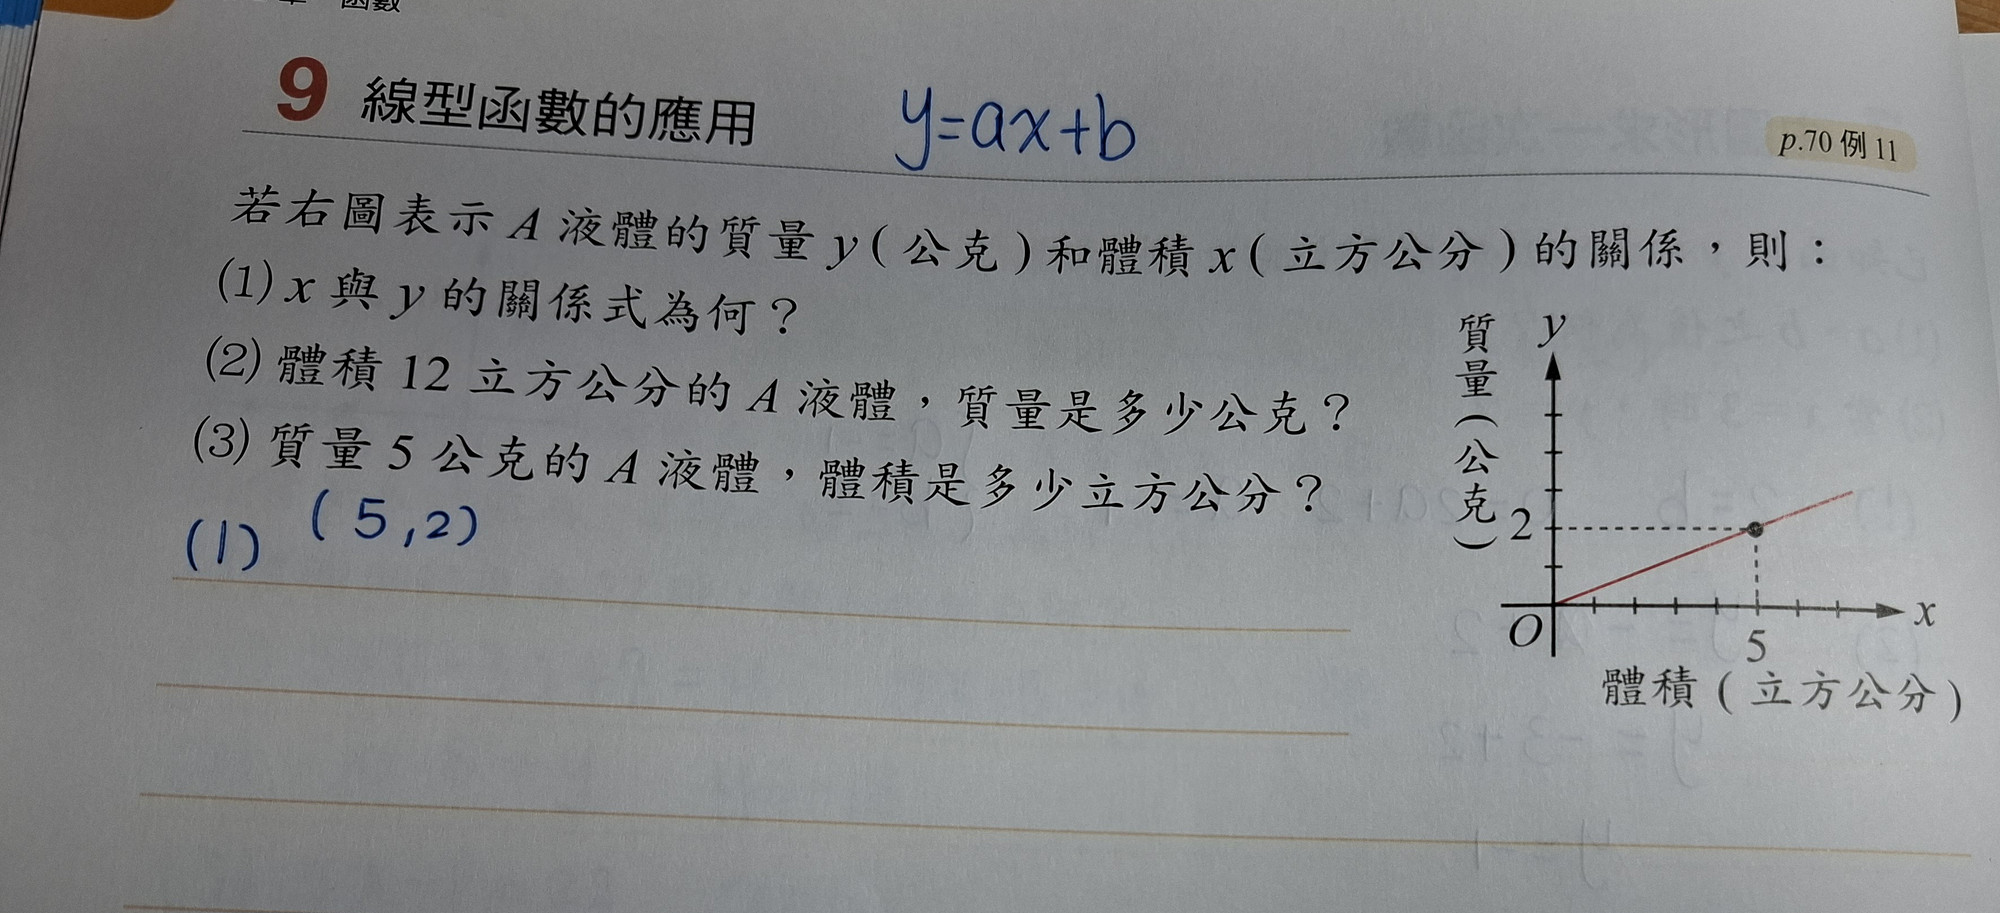 函數
9 線型函數的應用 y=ax+b p.70 例 11
若右圖表示 A 液體的質量 y(公克)和體積 x(立方公分)的關係，則：
(1) x 與 y 的關係式為何？
(2) 體積 12 立方公分的 A 液體，質量是多少公克？
(3) 質量 5 公克的 A 液體，體積是多少立方公分？
(1) (5,2)
質量(公克)
y
2
O
5
x
體積(立方公分)